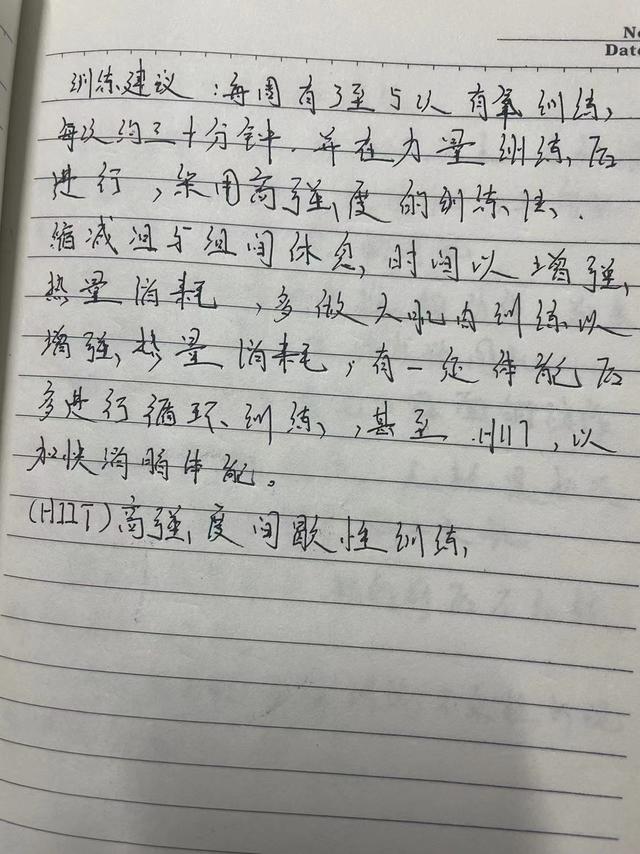 No
Date
训练建议：每周有3至5次有氧训练，
每次约三十分钟.并在力量训练后
进行，采用高强度的训练法.
缩减组与组间休息时间以增强
热量消耗，多做大肌肉训练以
增强热量消耗，有一定体能后
多进行循环训练，甚至.HIIT，以
加快消脂体能。
(HIIT)高强度间歇性训练